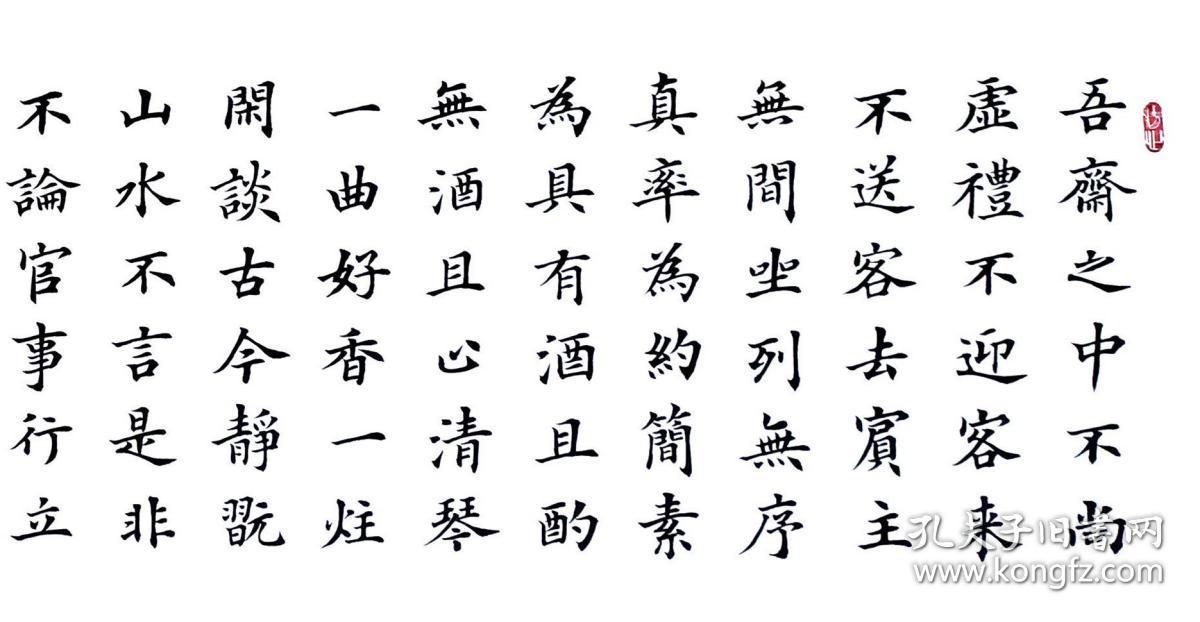 吾齋之中不尚
虛禮不迎客来
不送客去賓主
無間坐列無序
真率為約簡素
為具有酒且酌
無酒且止清琴
一曲好香一炷
閑談古今静翫
山水不言是非
不論官事行立
孔夫子旧書网
www.kongfz.com